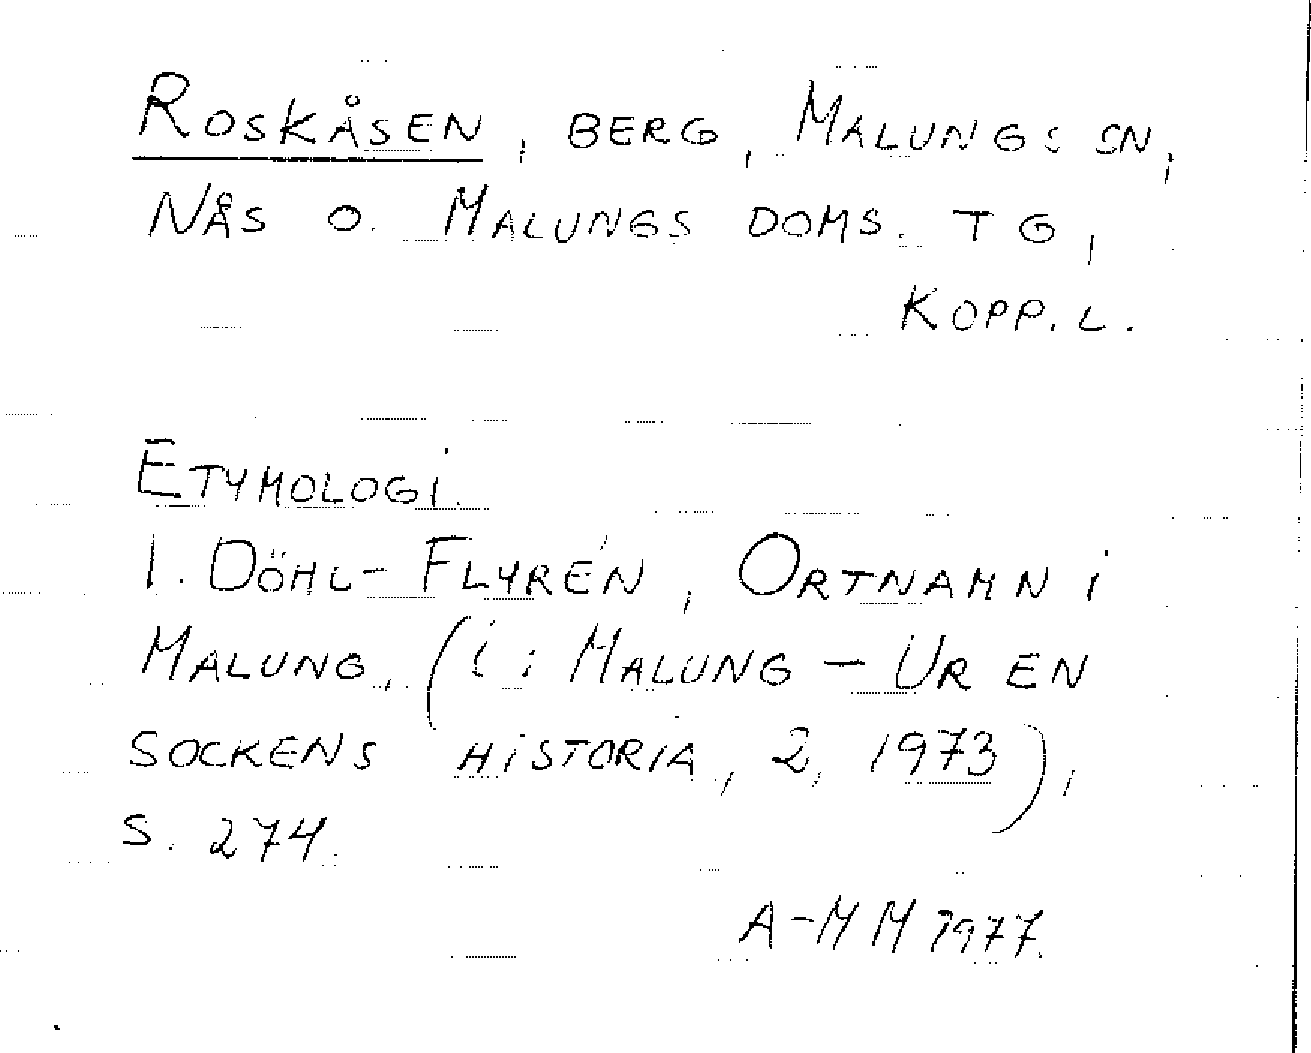 ROSKÅSEN, BERG, MALUNGS SN,
NÅS O. MALUNGS DOMS. TG,
KOPP. L.
ETYMOLOGI.
I. DÖHL-FLYRÉN, ORTNAMN I
MALUNG. (I: MALUNG - UR EN
SOCKENS HISTORIA, 2, 1973),
S. 274.
A-M M 1977.